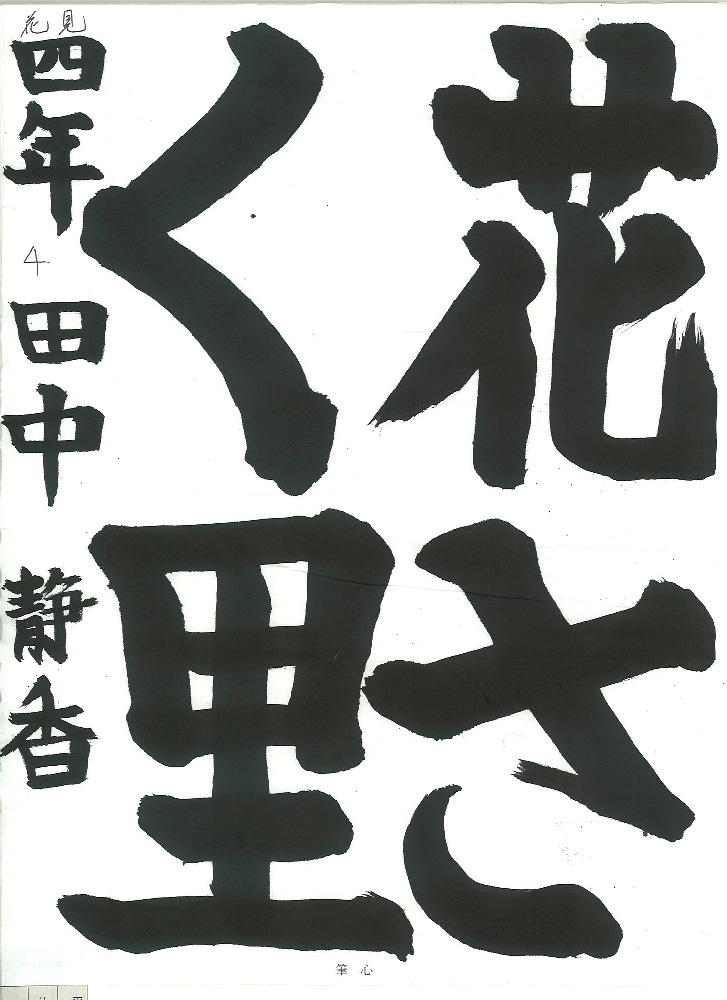 花さ
く里
花見
四年
4
田中
静香
筆心